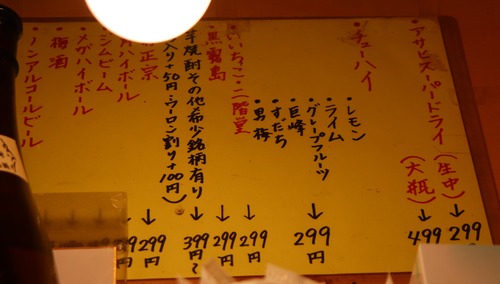 アサヒスーパードライ(生中) 299
(大瓶) 499
・チューハイ
・レモン
・ライム
・グレープフルーツ 299円
・巨峰
・すだち
・男梅
・いいちこ・二階堂 299
・黒霧島 299円
芋焼酎その他希少銘柄有り 399円〜
入り+50円・ウーロン割り+100円)
正宗 299円
ハイボール
ジムビーム
メガハイボール
・梅酒
・ノンアルコールビール